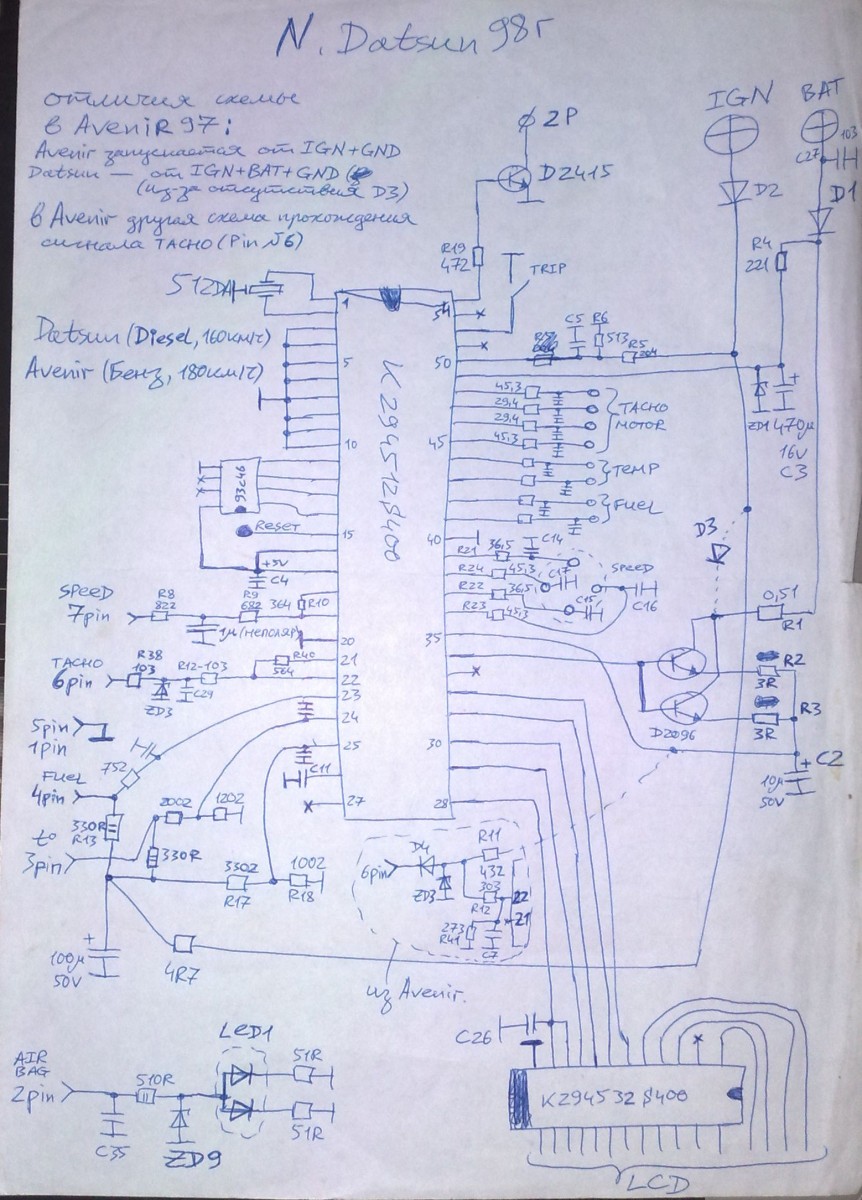 N. Datsun 98г
отличия схемы
в AveniR 97:
Avenir запускается от IGN+GND
Datsun — от IGN+BAT+GND
(из-за отсутствия D3)
в Avenir другая схема прохождения
сигнала TACHO (Pin №6)
IGN
BAT
103
C27
D2
D1
2P
D2415
R19
472
R4
221
TRIP
512DA
Datsun (Diesel, 160км/ч)
Avenir (Бенз, 180км/ч)
1
54
5
50
10
45
15
40
20
35
21
22
23
24
30
25
27
28
K294512S400
C5
R6
513
R5
204
45,3
29,4
29,4
45,3
TACHO
MOTOR
TEMP
FUEL
ZD1
470μ
16V
C3
93C46
Reset
+5V
C4
R21
36,5
C14
R24
45,3
C17
R22
36,5
C15
R23
45,3
SPEED
C16
D3
0,51
R1
R2
3R
R3
3R
D2096
C2
10μ
50V
SPEED
7pin
R8
822
R9
682
364
R10
1μ (неполяр)
TACHO
6pin
R38
103
ZD3
C29
R12-103
R40
564
5pin
1pin
752
FUEL
4pin
330R
R13
2002
1202
C11
t°
3pin
330R
3302
R17
1002
R18
100μ
50V
4R7
6pin
D4
ZD3
R11
432
303
R12
22
21
273
R41
C7
из Avenir.
AIR
BAG
2pin
510R
C35
ZD9
LED1
51R
51R
C26
K294532S400
LCD